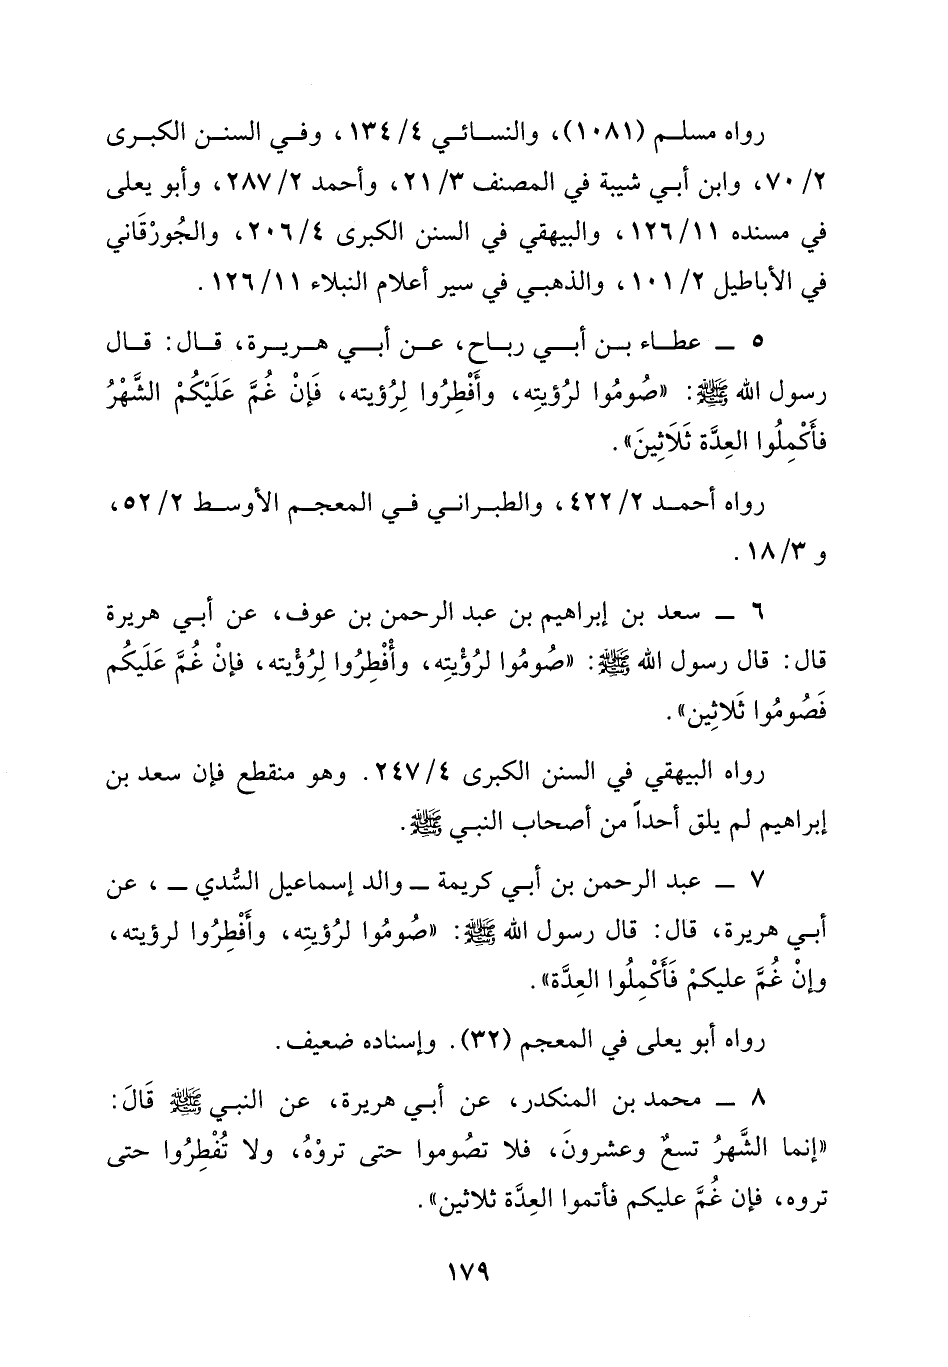 رواه مسلم (١٠٨١)، والنسائي ٤/ ١٣٤، وفي السنن الكبرى
٢/ ٧٠، وابن أبي شيبة في المصنف ٣/ ٢١، وأحمد ٢/ ٢٨٧، وأبو يعلى
في مسنده ١١/ ١٢٦، والبيهقي في السنن الكبرى ٤/ ٢٠٦، والجُورْقَاني
في الأباطيل ٢/ ١٠١، والذهبي في سير أعلام النبلاء ١١/ ١٢٦.
٥ ـ عطاء بن أبي رباح، عن أبي هريرة، قال: قال
رسول الله ﷺ: «صُومُوا لرُؤيتِه، وأَفْطِرُوا لِرُؤيته، فَإنْ غُمَّ عَلَيْكُمْ الشَّهْرُ
فأَكْمِلُوا العِدَّة ثَلَاثِينَ».
رواه أحمد ٢/ ٤٢٢، والطبراني في المعجم الأوسط ٢/ ٥٢،
و ٣/ ١٨.
٦ ـ سعد بن إبراهيم بن عبد الرحمن بن عوف، عن أبي هريرة
قال: قال رسول الله ﷺ: «صُومُوا لرُؤْيتِه، وأَفْطِرُوا لِرُؤْيته، فإنْ غُمَّ عَلَيكُم
فَصُومُوا ثَلاثِين».
رواه البيهقي في السنن الكبرى ٤/ ٢٤٧. وهو منقطع فإن سعد بن
إبراهيم لم يلق أحداً من أصحاب النبي ﷺ.
٧ ـ عبد الرحمن بن أبي كريمة ـ والد إسماعيل السُّدي ـ، عن
أبي هريرة، قال: قال رسول الله ﷺ: «صُومُوا لرُؤيتِه، وأَفْطِرُوا لرؤيته،
وإنْ غُمَّ عليكمْ فَأَكْمِلُوا العِدَّة».
رواه أبو يعلى في المعجم (٣٢). وإسناده ضعيف.
٨ ـ محمد بن المنكدر، عن أبي هريرة، عن النبي ﷺ قَالَ:
«إنما الشَّهرُ تسعٌ وعشرونَ، فلا تصُوموا حتى تروْهُ، ولا تُفْطِرُوا حتى
تروه، فإن غُمَّ عليكم فأتموا العِدَّة ثلاثين».
١٧٩